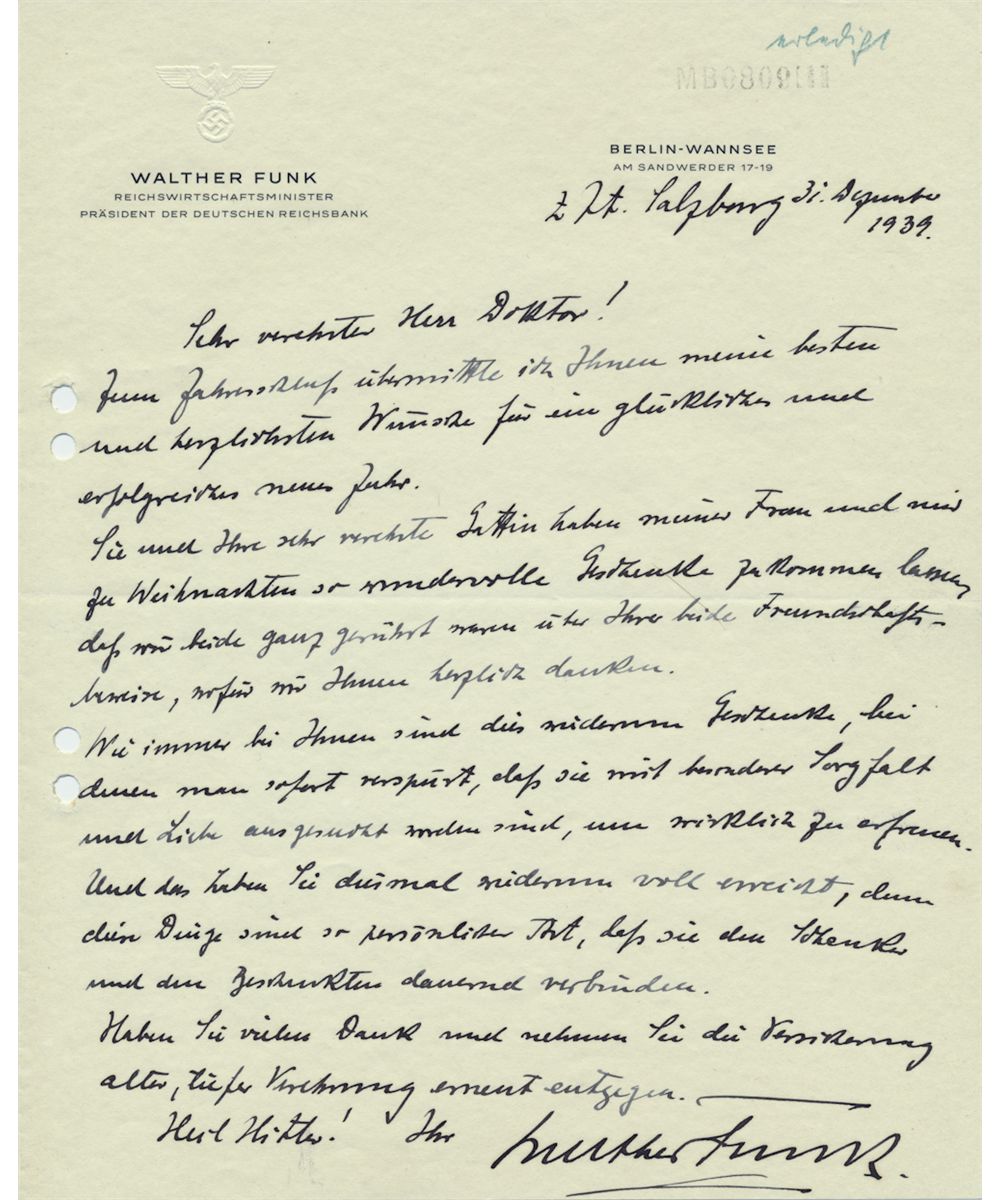 erledigt
MB0809111
WALTHER FUNK
REICHSWIRTSCHAFTSMINISTER
PRÄSIDENT DER DEUTSCHEN REICHSBANK
BERLIN-WANNSEE
AM SANDWERDER 17-19
z Zt. Salzburg 31. Dezember
1939.
Sehr verehrter Herr Doktor!
Zum Jahresschluß übermittle ich Ihnen meine besten
und herzlichsten Wünsche für ein glückliches und
erfolgreiches neues Jahr.
Sie und Ihre sehr verehrte Gattin haben meiner Frau und mir
zu Weihnachten so wundervolle Geschenke zukommen lassen,
daß wir beide ganz gerührt waren über Ihrer beide Freundschafts-
beweise, wofür wir Ihnen herzlich danken.
Wie immer bei Ihnen sind dies wiederum Geschenke, bei
denen man sofort verspürt, daß sie mit besonderer Sorgfalt
und Liebe ausgesucht worden sind, um wirklich zu erfreuen.
Und das haben Sie diesmal wiederum voll erreicht, denn
diese Dinge sind so persönlicher Art, daß sie den Schenker
und den Beschenkten dauernd verbinden.
Haben Sie vielen Dank und nehmen Sie die Versicherung
alter, tiefer Verehrung erneut entgegen.
Heil Hitler! Ihr Walther Funk.